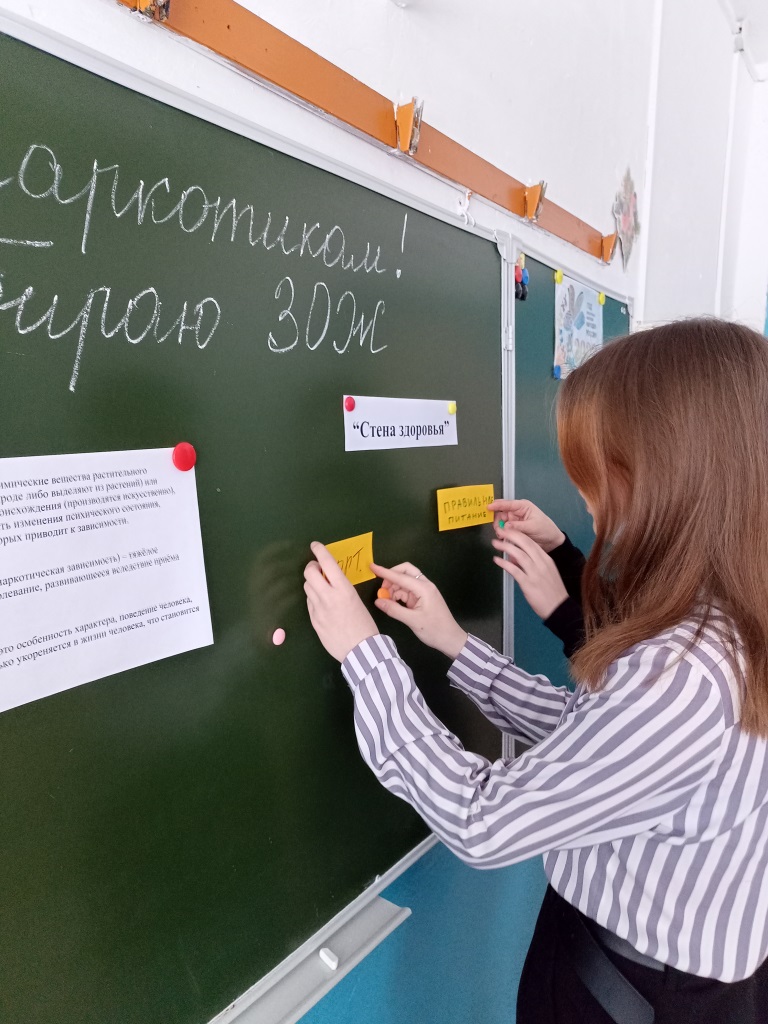 наркотикам!
бираю ЗОЖ
“Стена здоровья”
ПРАВИЛЬНОЕ
ПИТАНИЕ
ОРТ.
имические вещества растительного
ироде либо выделяют из растений) или
оисхождения (производятся искусственно),
ть изменения психического состояния,
орых приводит к зависимости.
наркотическая зависимость) – тяжёлое
олевание, развивающееся вследствие приёма
это особенность характера, поведение человека,
ько укореняется в жизни человека, что становится